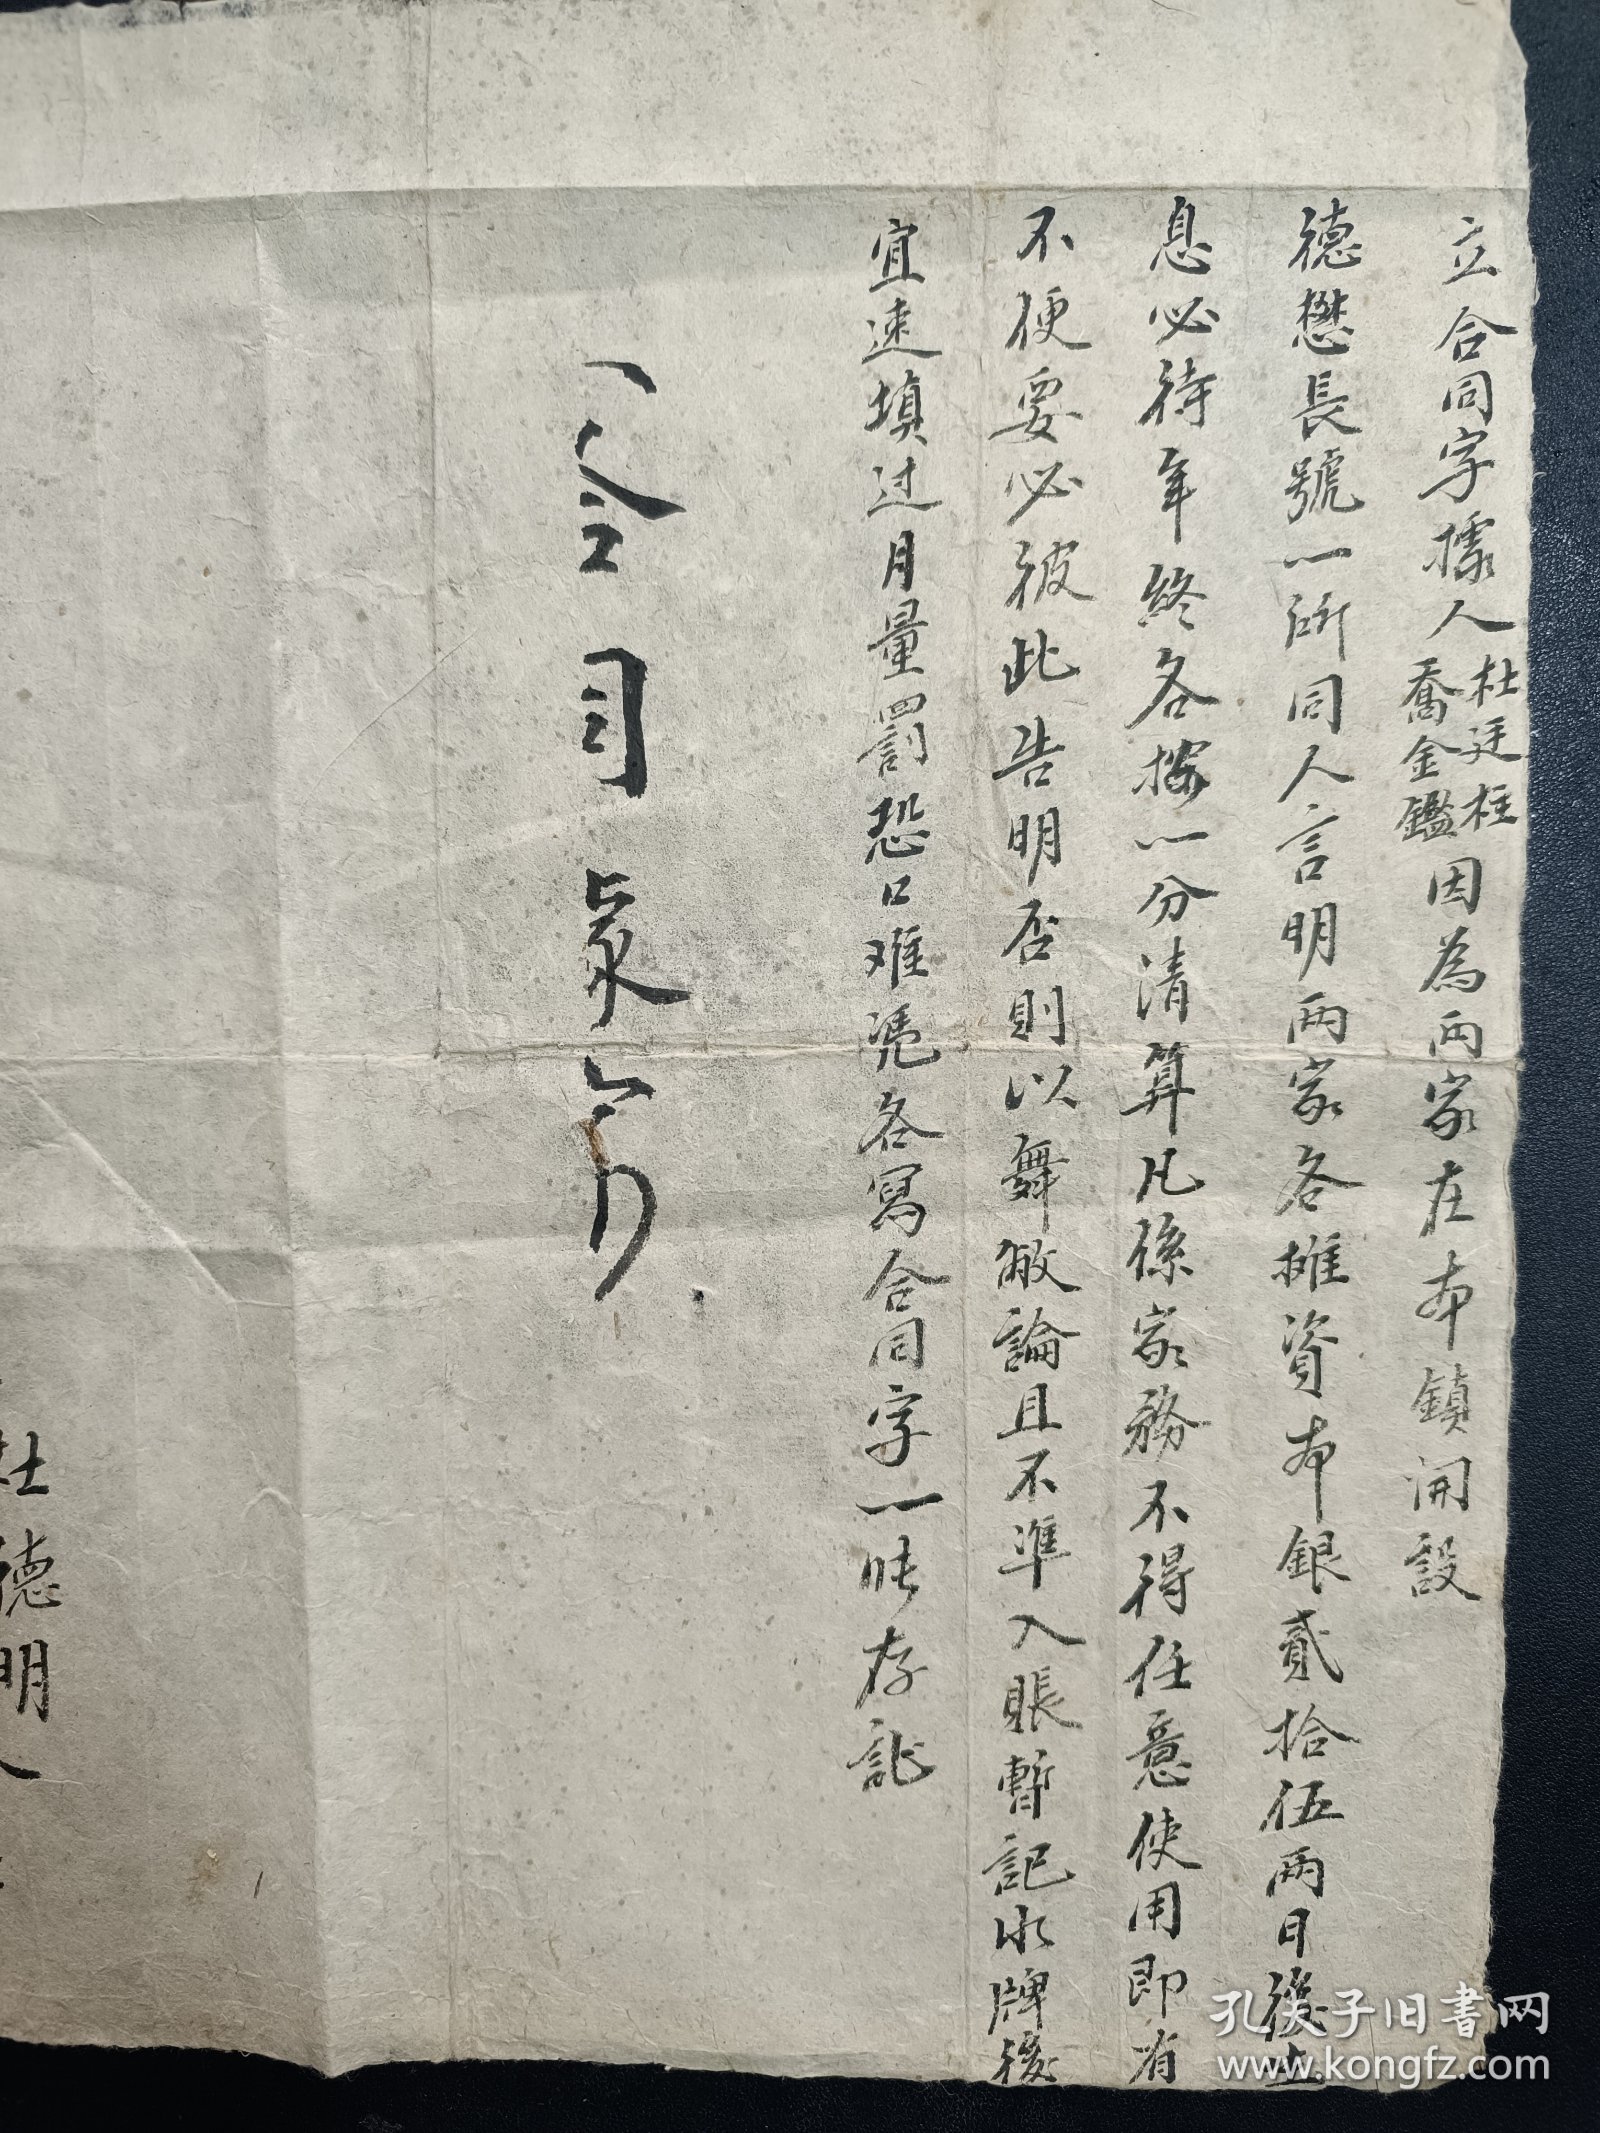 立合同字據人杜廷柱喬金鑑因為兩家在本鎮開設
德懋長號一所同人言明兩家各摊資本銀貳拾伍兩日後生
息必待年終各按一分清算凡係家務不得任意使用即有
不便要必彼此告明否則以舞敝論且不準入賬暫記水牌後
宜速填过月量罰恐口难凭各寫合同字一帋存証
杜德明
孔夫子旧書网
www.kongfz.com